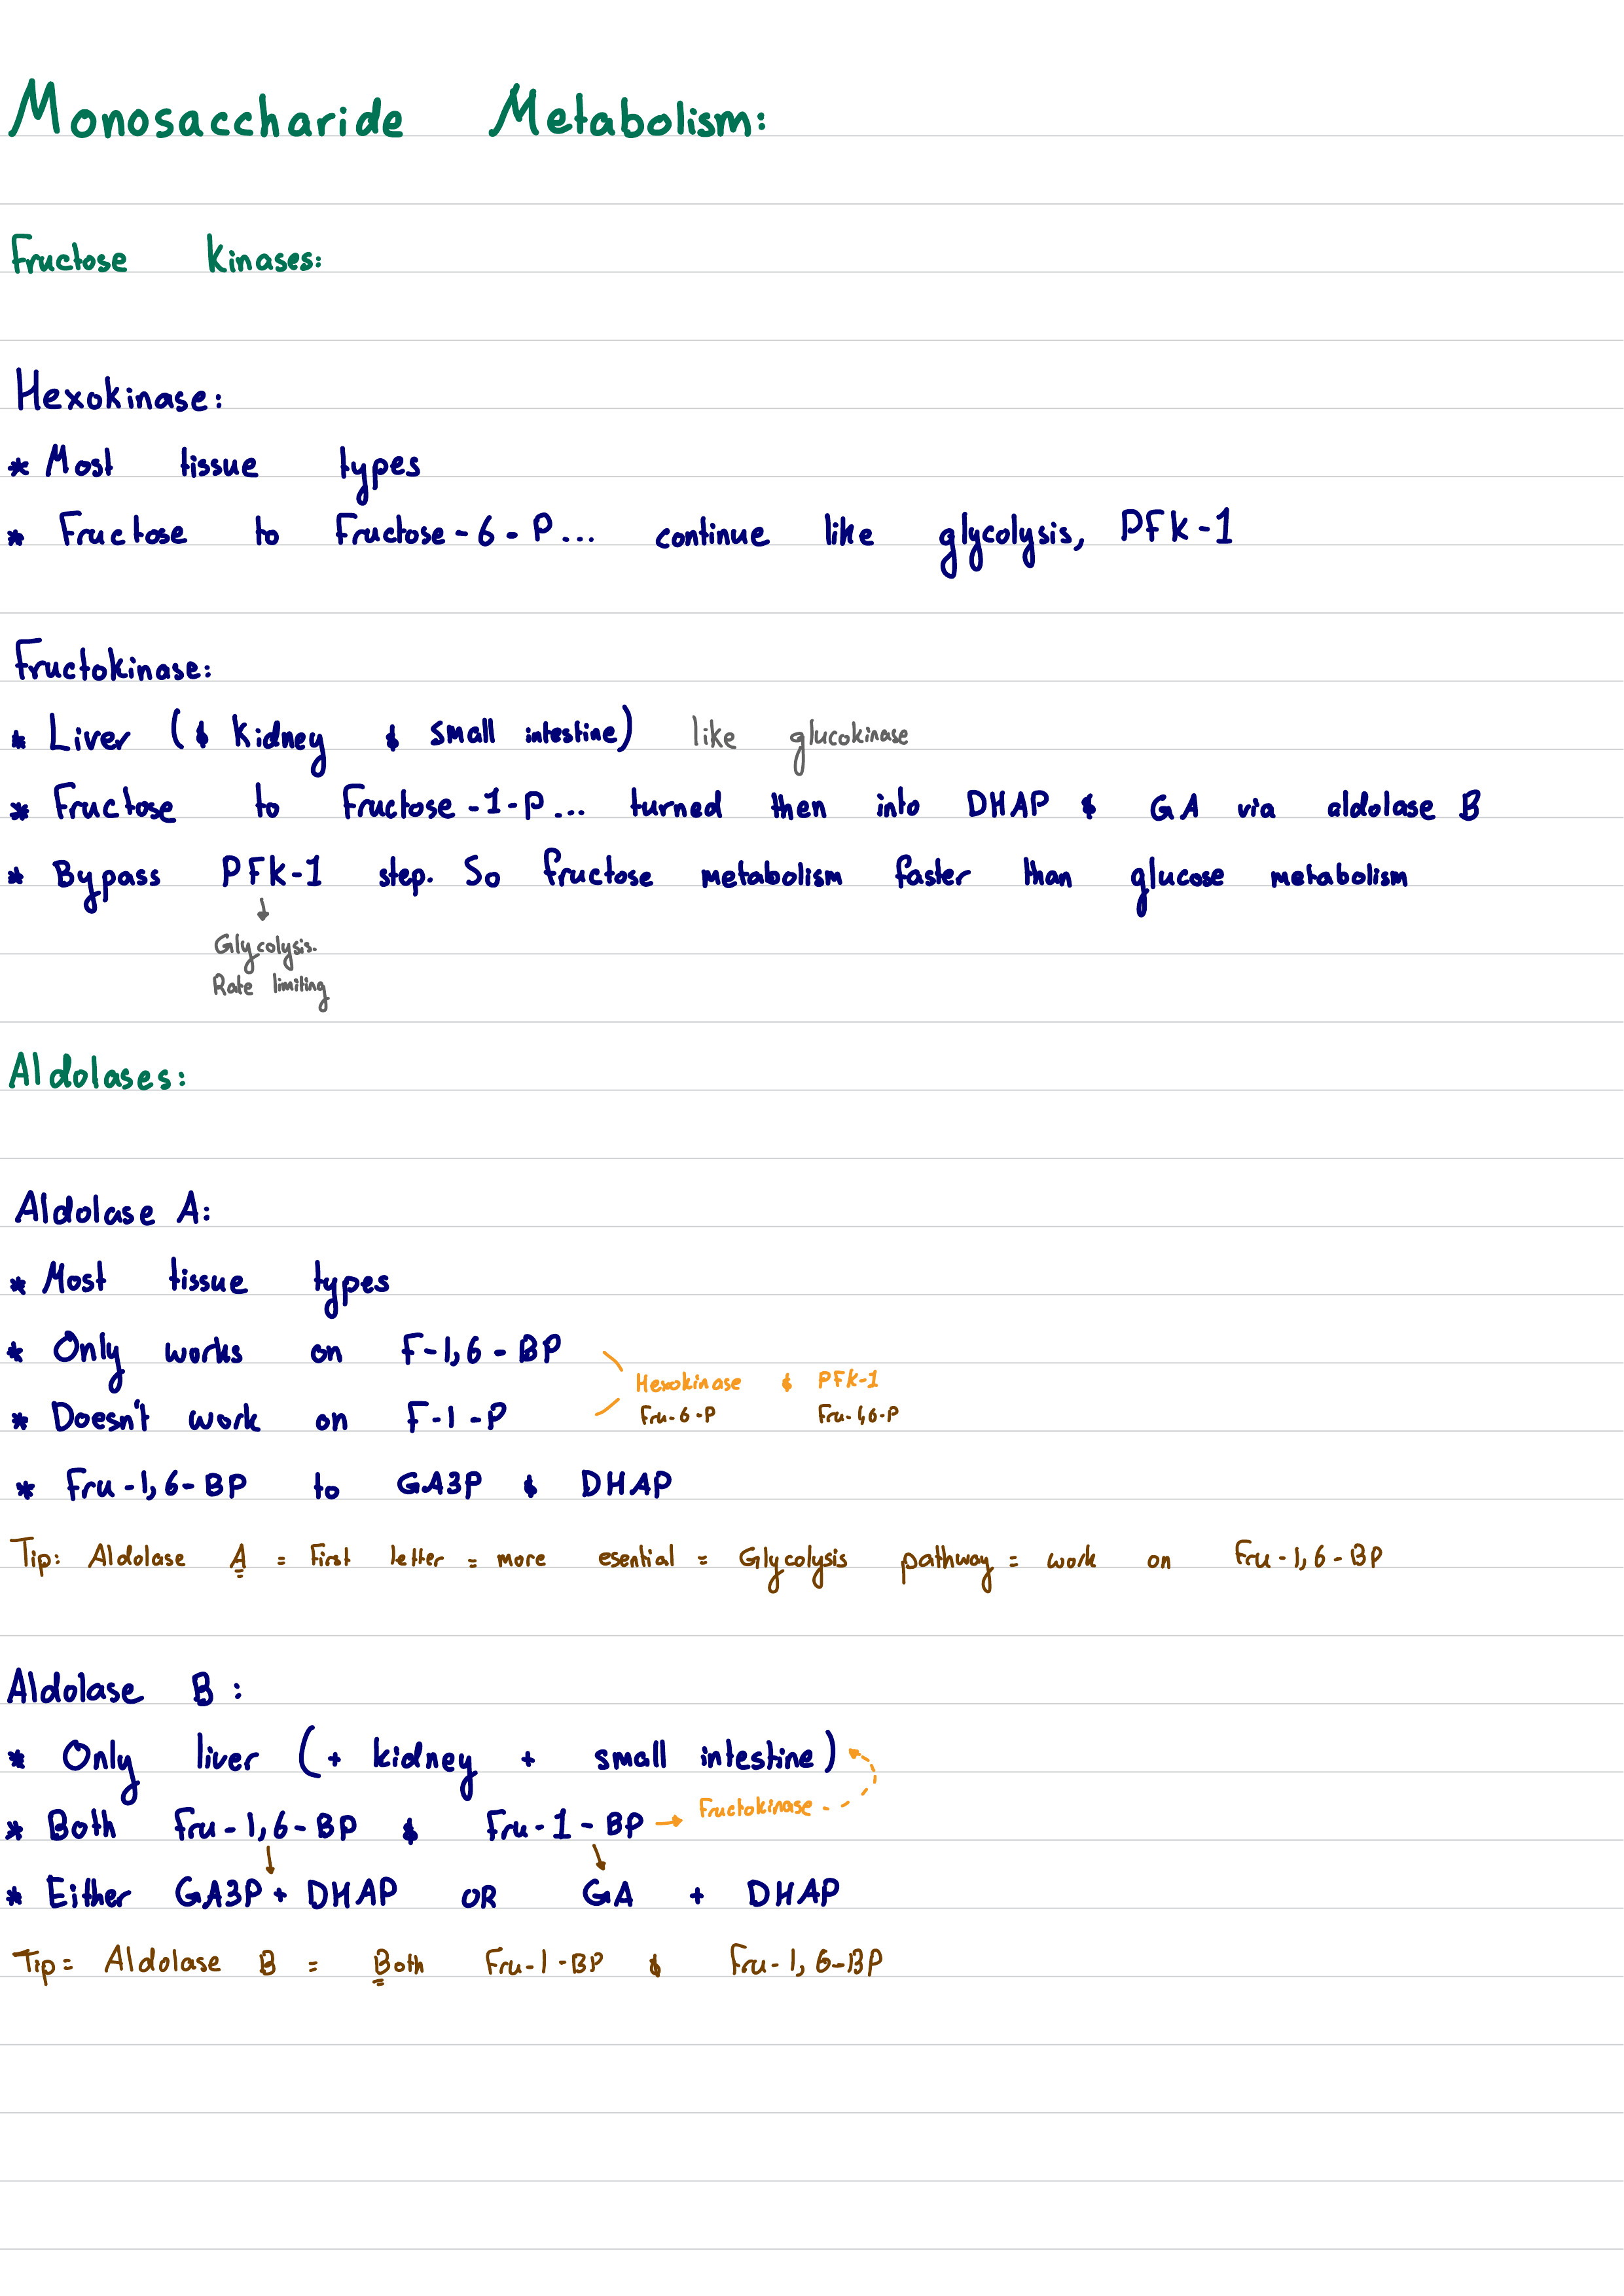 Monosaccharide Metabolism:
Fructose Kinases:
Hexokinase:
* Most tissue types
* Fructose to Fructose-6-P... continue like glycolysis, PFK-1
Fructokinase:
* Liver (& Kidney & small intestine) like glucokinase
* Fructose to Fructose-1-P... turned then into DHAP & GA via aldolase B
* Bypass PFK-1 step. So fructose metabolism faster than glucose metabolism
↓
Glycolysis.
Rate limiting
Aldolases:
Aldolase A:
* Most tissue types
* Only works on F-1,6-BP
Hexokinase & PFK-1
* Doesn't work on F-1-P
Fru-6-P Fru-1,6-P
* Fru-1,6-BP to GA3P & DHAP
Tip: Aldolase A = First letter = more esential = Glycolysis pathway = work on Fru-1,6-BP
Aldolase B:
* Only liver (+ kidney + small intestine)
* Both Fru-1,6-BP & Fru-1-BP → Fructokinase
* Either GA3P + DHAP OR GA + DHAP
Tip= Aldolase B = Both Fru-1-BP & Fru-1,6-BP